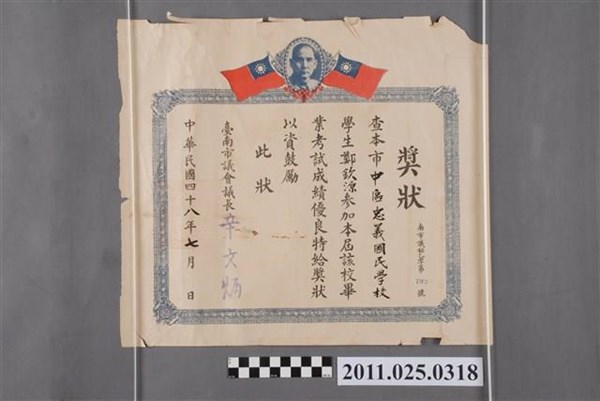 獎狀
查本市中區忠義國民學校
學生鄭欽源參加本屆該校畢
業考試成績優良特給獎狀
以資鼓勵
此狀
臺南市議會議長 辛文炳
中華民國四十八年七月 日
2011.025.0318